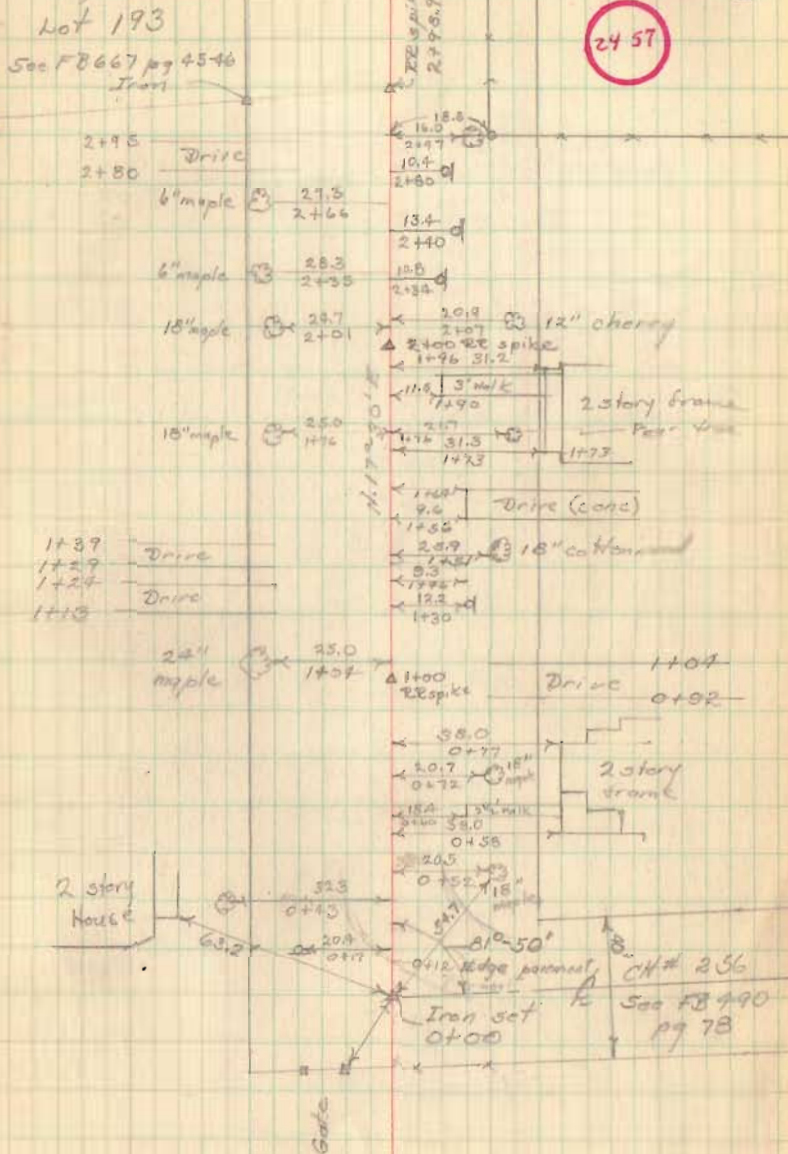 Lot 193
See FB667 pg 45-46
Iron
RR spike
24 57
18.8
16.0
2+97
2+95
Drive
2+80
10.4
2+80
6" maple
27.3
2+66
13.4
2+40
6" maple
28.3
2+35
10.8
2+34
18" maple
24.7
2+01
20.9
2+07
12" cherry
2+00 RR spike
1+96 31.2
11.5
3' Walk
1+90
2 story frame
18" maple
25.0
1+76
21.7
1+76
Pear tree
31.3
1+73
1+73
N.17°-30'E
1+64
9.6
1+56
Drive (conc)
1+39
Drive
1+29
1+24
Drive
1+13
23.9
18" cotton
12.2
1+30
24"
maple
25.0
1+04
1+00
RR spike
Drive
1+04
0+92
38.0
0+77
20.7
0+72
18"
maple
2 story
frame
38.0
0+58
20.5
0+52
18"
maple
2 story
House
32.3
0+43
63.2
20.4
0+17
54.7
81°-50'
0+12 Edge pavement
8"
CH# 256
See FB 490
pg 78
Iron set
0+00
Gate